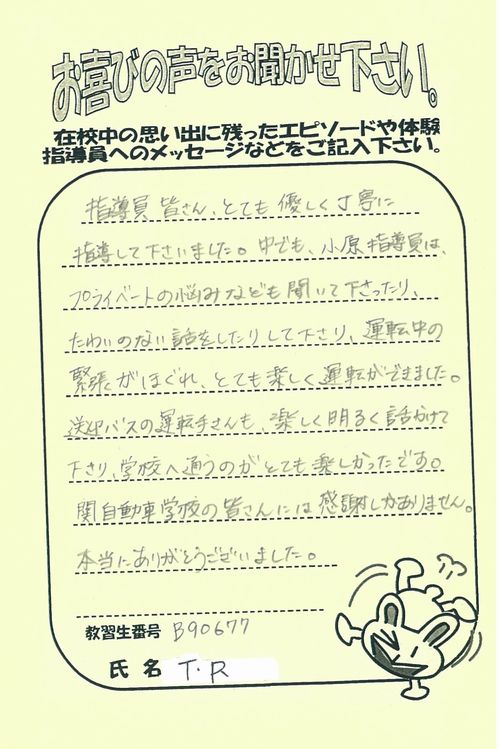 お喜びの声をお聞かせ下さい。
在校中の思い出に残ったエピソードや体験
指導員へのメッセージなどをご記入下さい。
指導員皆さん、とても優しく丁寧に
指導して下さいました。中でも、小原指導員は、
プライベートの悩みなども聞いて下さったり、
たわいのない話をしたりして下さり、運転中の
緊張がほぐれ、とても楽しく運転ができました。
送迎バスの運転手さんも、楽しく明るく話かけて
下さり、学校へ通うのがとても楽しかったです。
関自動車学校の皆さんには感謝しかありません。
本当にありがとうございました。
教習生番号 B90677
氏名 T・R